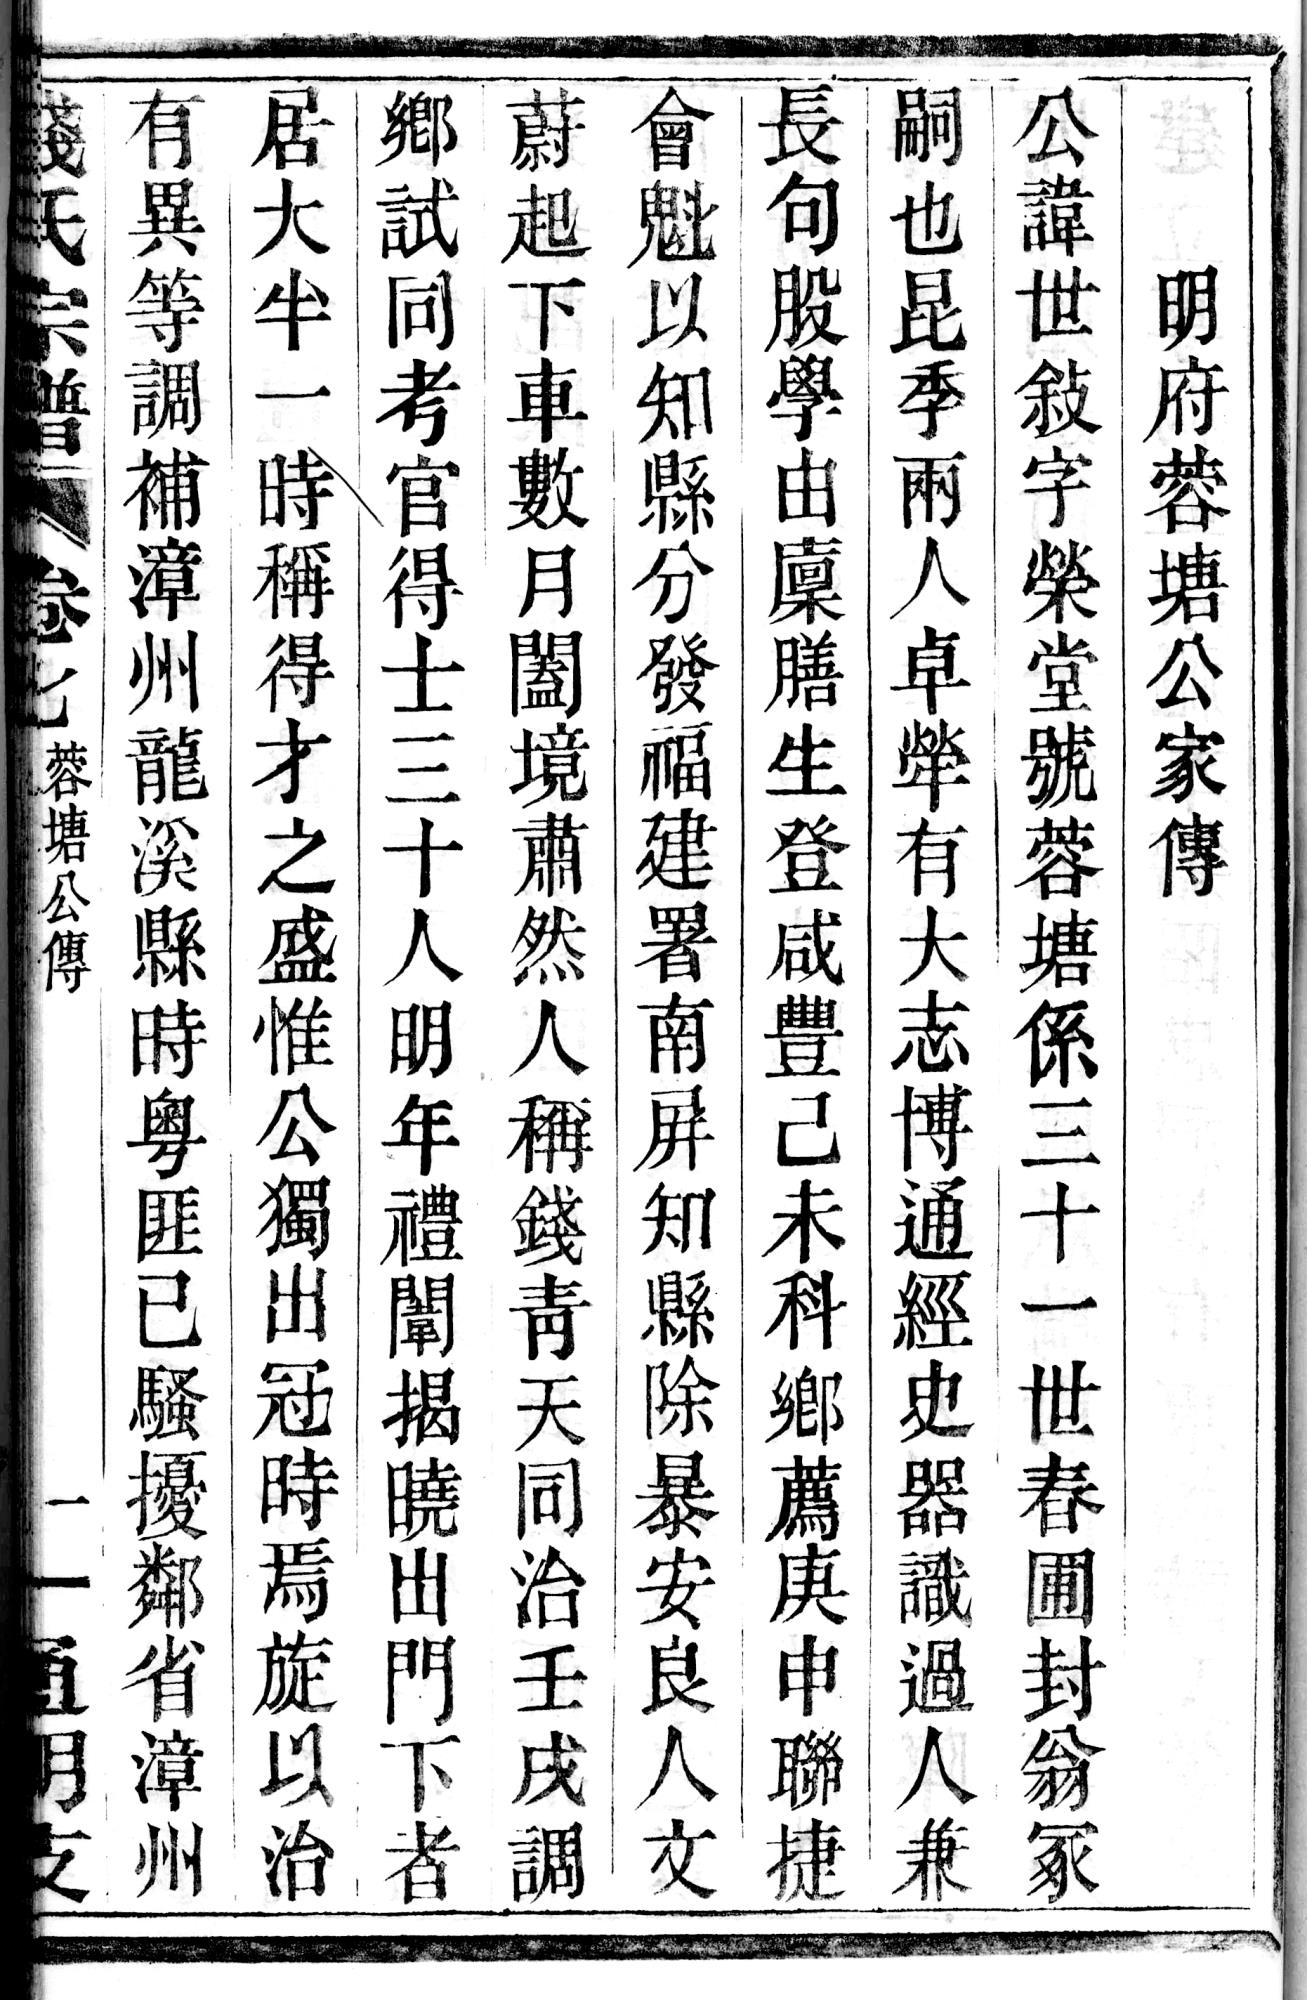 明府蓉塘公家傳
公諱世敍字榮堂號蓉塘係三十一世春圃封翁冢
嗣也昆季兩人卓犖有大志博通經史器識過人兼
長句股學由廩膳生登咸豐己未科鄉薦庚申聯捷
會魁以知縣分發福建署南屏知縣除暴安良人文
蔚起下車數月闔境肅然人稱錢靑天同治壬戌調
鄉試同考官得士三十人明年禮闈揭曉出門下者
居大半一時稱得才之盛惟公獨出冠時焉旋以治
有異等調補漳州龍溪縣時粤匪已騷擾鄰省漳州
錢氏宗譜 卷七 蓉塘公傳 二 通明支